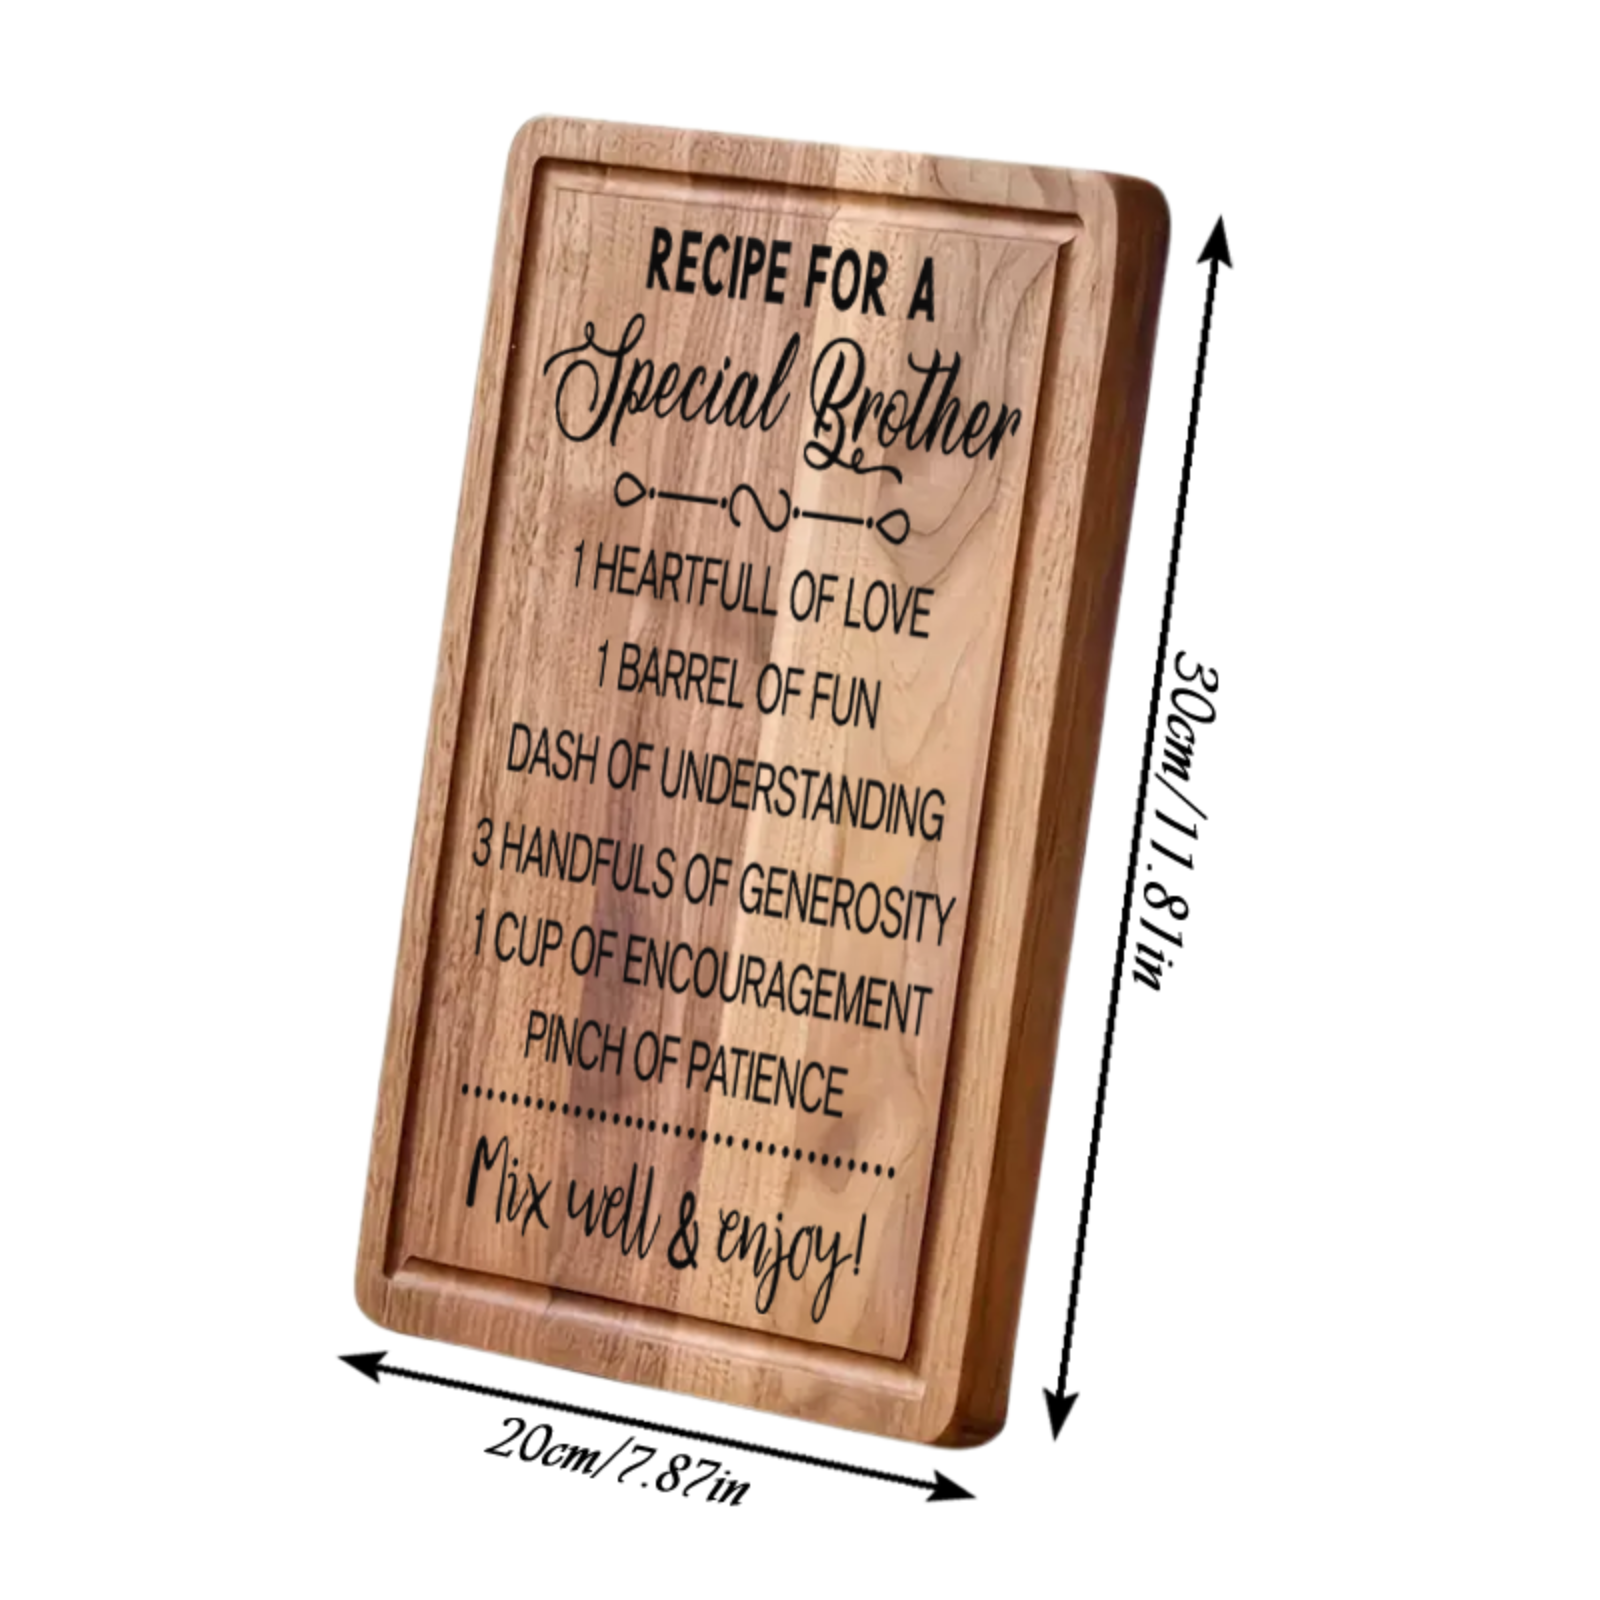 RECIPE FOR A
Special Brother
1 HEARTFULL OF LOVE
1 BARREL OF FUN
DASH OF UNDERSTANDING
3 HANDFULS OF GENEROSITY
1 CUP OF ENCOURAGEMENT
PINCH OF PATIENCE
Mix well & enjoy!
20cm/7.87in
30cm/11.81in